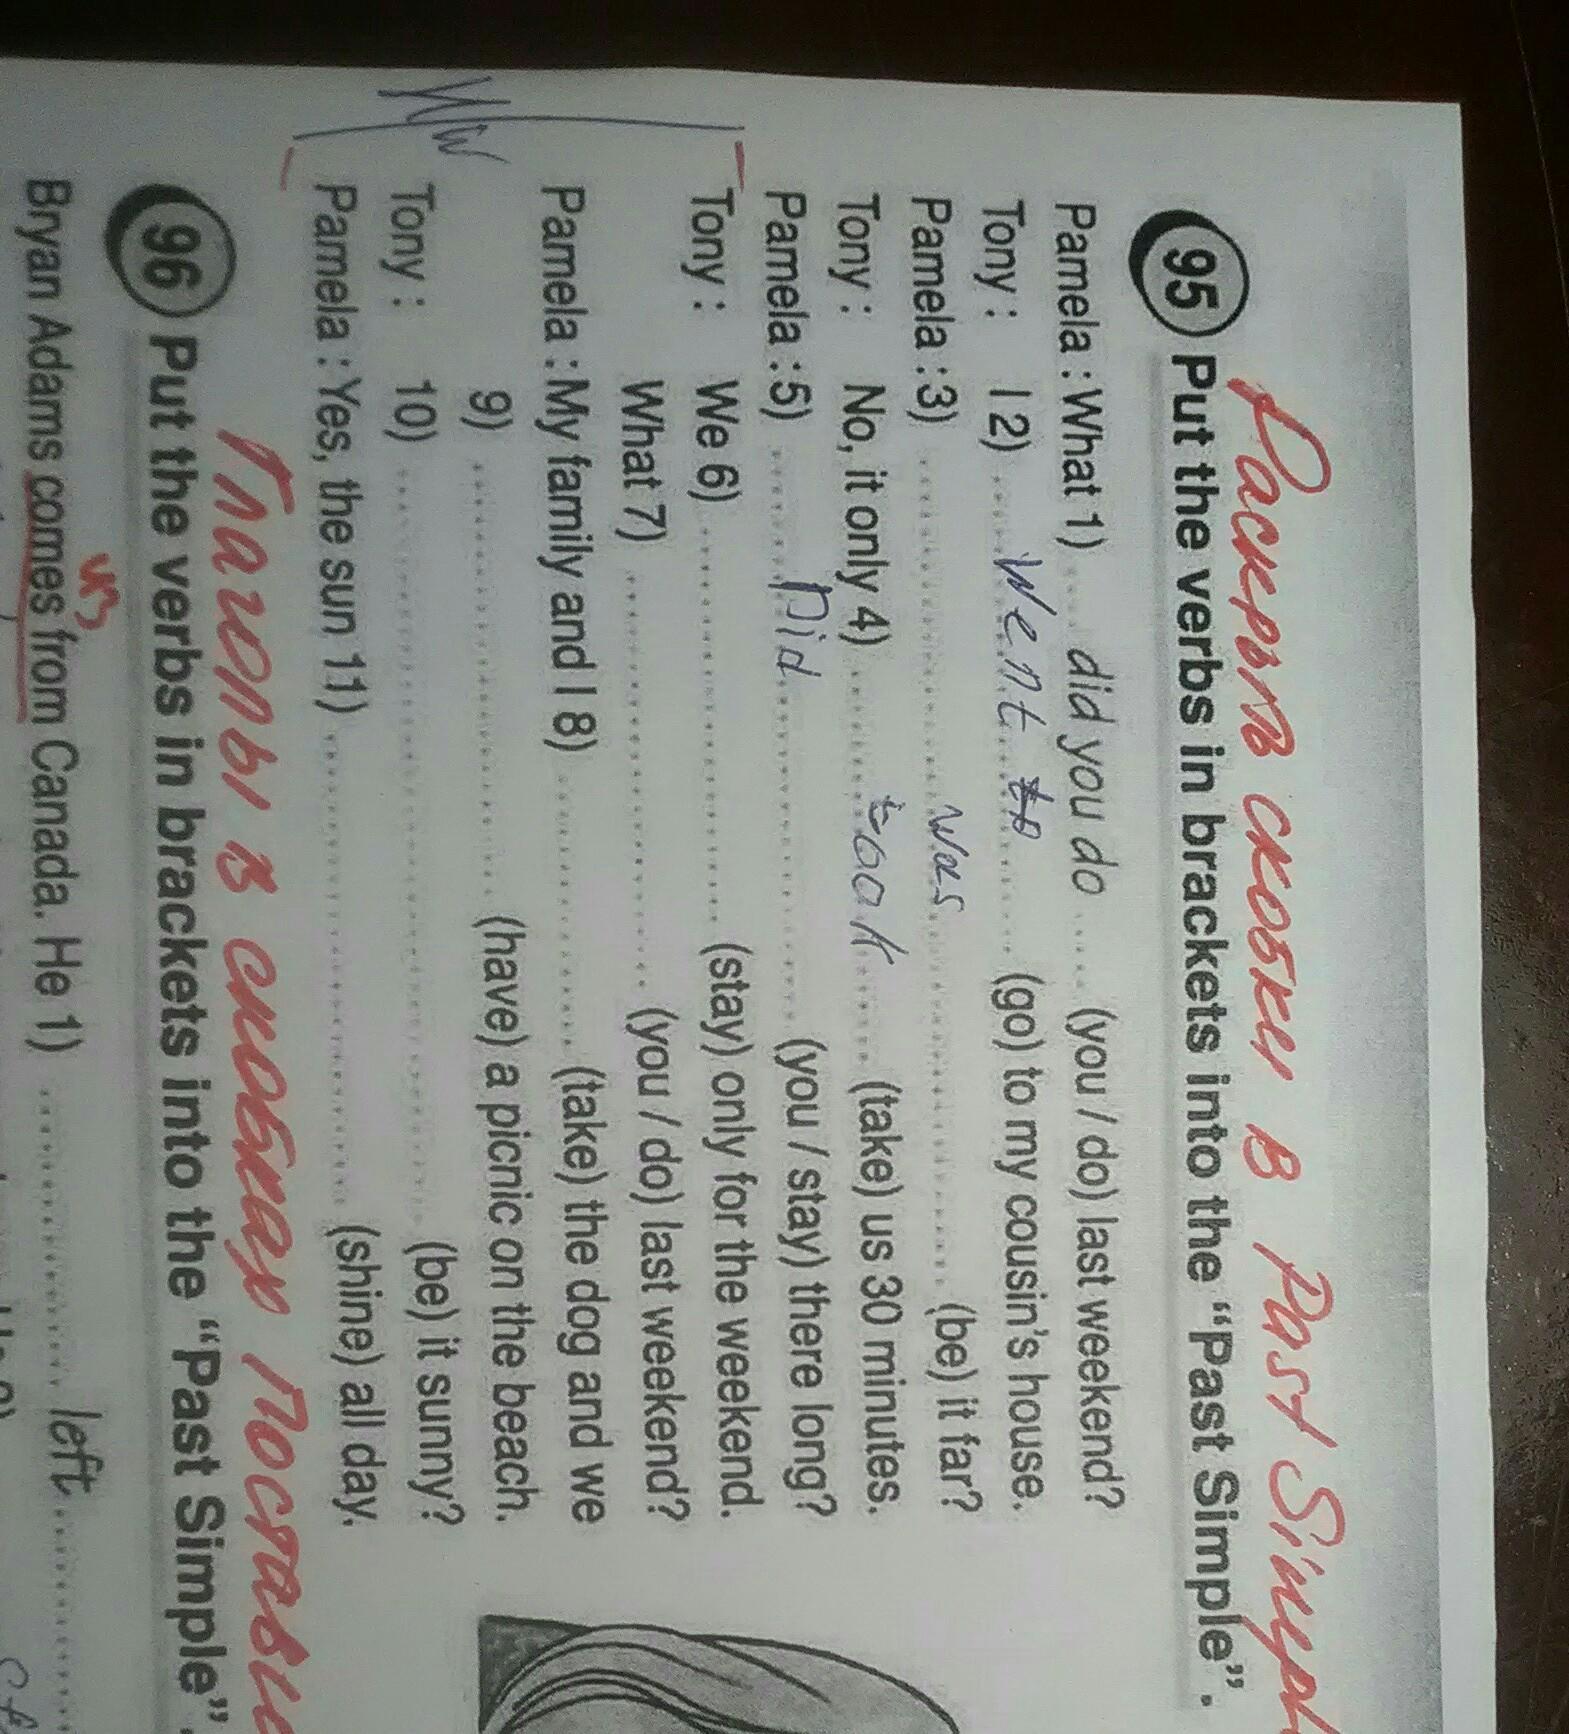 Раскрыв скобки в Past Simpl
95 Put the verbs in brackets into the “Past Simple”.
Pamela : What 1) ..... did you do ..... (you / do) last weekend?
Tony : I 2) ..... went to ..... (go) to my cousin's house.
Pamela : 3) ..... was ..... (be) it far?
Tony : No, it only 4) ..... took ..... (take) us 30 minutes.
Pamela : 5) ..... Did ..... (you / stay) there long?
Tony : We 6) ..... (stay) only for the weekend.
What 7) ..... (you / do) last weekend?
Pamela : My family and I 8) ..... (take) the dog and we
9) ..... (have) a picnic on the beach.
Tony : 10) ..... (be) it sunny?
Pamela : Yes, the sun 11) ..... (shine) all day.
Глаголы в скобках постави
96 Put the verbs in brackets into the “Past Simple”.
из
Bryan Adams comes from Canada. He 1) ..... left .....